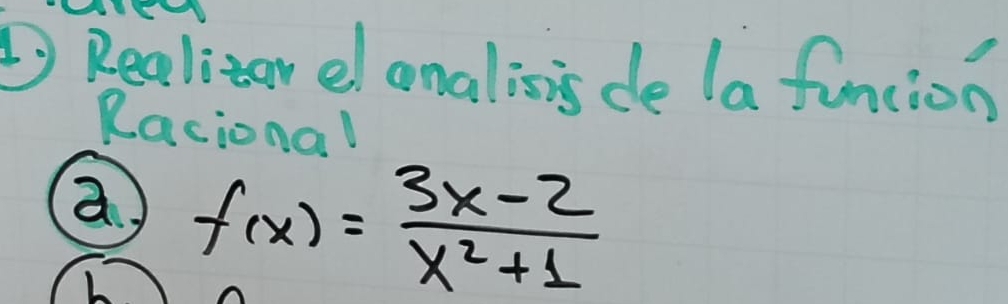 1.) Realizar el analisis de la función
Racional
a. f(x) = \frac{3x-2}{x^2+1}